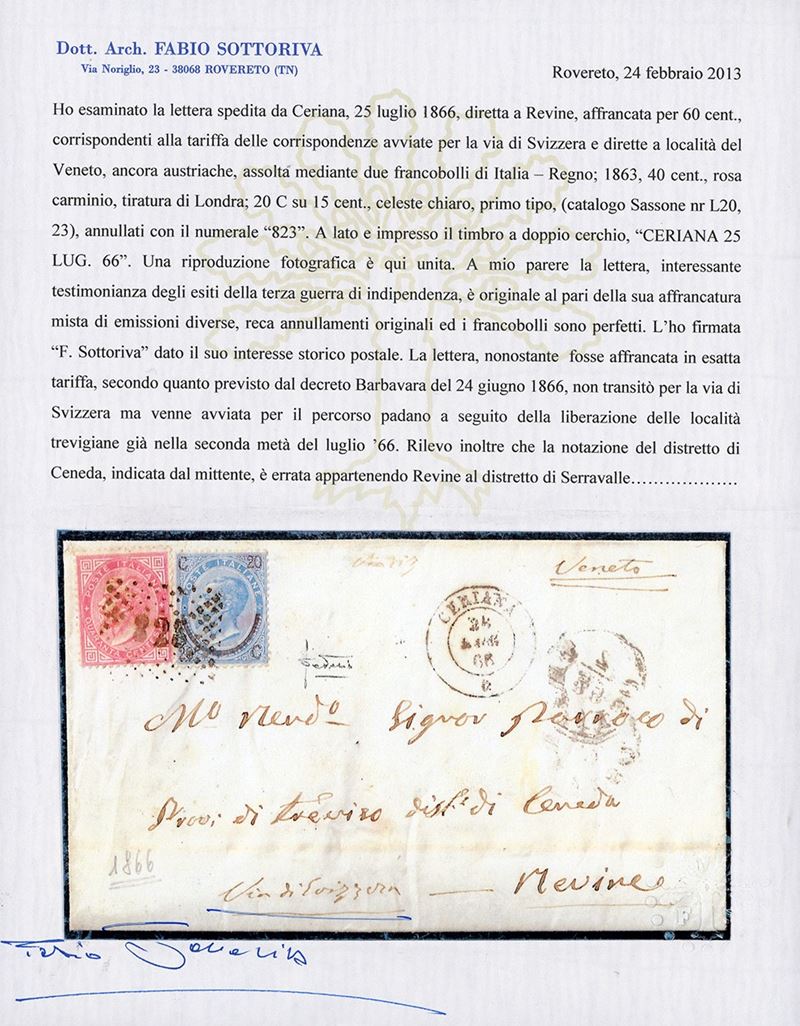 Dott. Arch. FABIO SOTTORIVA
Via Noriglio, 23 - 38068 ROVERETO (TN)
Rovereto, 24 febbraio 2013
Ho esaminato la lettera spedita da Ceriana, 25 luglio 1866, diretta a Revine, affrancata per 60 cent.,
corrispondenti alla tariffa delle corrispondenze avviate per la via di Svizzera e dirette a località del
Veneto, ancora austriache, assolta mediante due francobolli di Italia – Regno; 1863, 40 cent., rosa
carminio, tiratura di Londra; 20 C su 15 cent., celeste chiaro, primo tipo, (catalogo Sassone nr L20,
23), annullati con il numerale “823”. A lato e impresso il timbro a doppio cerchio, “CERIANA 25
LUG. 66”. Una riproduzione fotografica è qui unita. A mio parere la lettera, interessante
testimonianza degli esiti della terza guerra di indipendenza, è originale al pari della sua affrancatura
mista di emissioni diverse, reca annullamenti originali ed i francobolli sono perfetti. L’ho firmata
“F. Sottoriva” dato il suo interesse storico postale. La lettera, nonostante fosse affrancata in esatta
tariffa, secondo quanto previsto dal decreto Barbavara del 24 giugno 1866, non transitò per la via di
Svizzera ma venne avviata per il percorso padano a seguito della liberazione delle località
trevigiane già nella seconda metà del luglio ’66. Rilevo inoltre che la notazione del distretto di
Ceneda, indicata dal mittente, è errata appartenendo Revine al distretto di Serravalle………………
POSTE ITALIANE
QUARANTA CENT
C 20
POSTE ITALIANE
C
Veneto
CERIANA
25
LUG
66
Mo Revdo Signor Parroco di
Provi di Treviso distto di Ceneda
1866
Via di Svizzera — Revine
Fabio Sottoriva